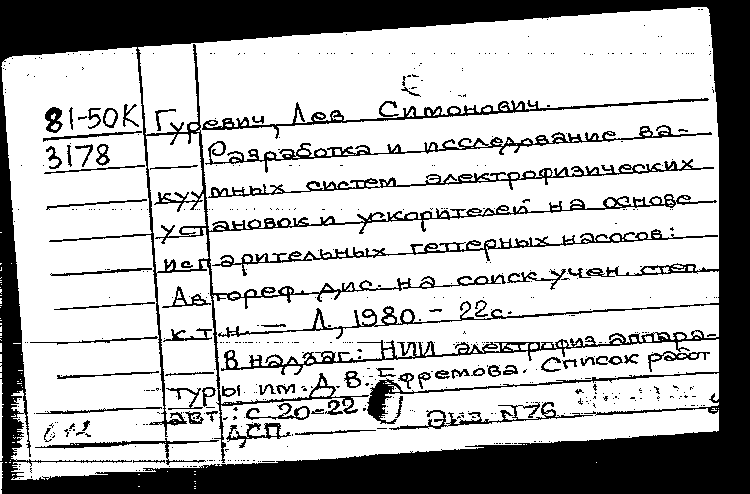 81-50К Гуревич, Лев Симонович.
3178 Разработка и исследование ва-
куумных систем электрофизических
установок и ускорителей на основе
испарительных геттерных насосов:
Автореф. дис. на соиск. учен. степ.
к.т.н. — Л., 1980. - 22с.
В надзаг.: НИИ электрофиз. аппара-
туры им. Д.В. Ефремова. Список работ
авт.: с. 20-22. Экз. N76
ДСП.